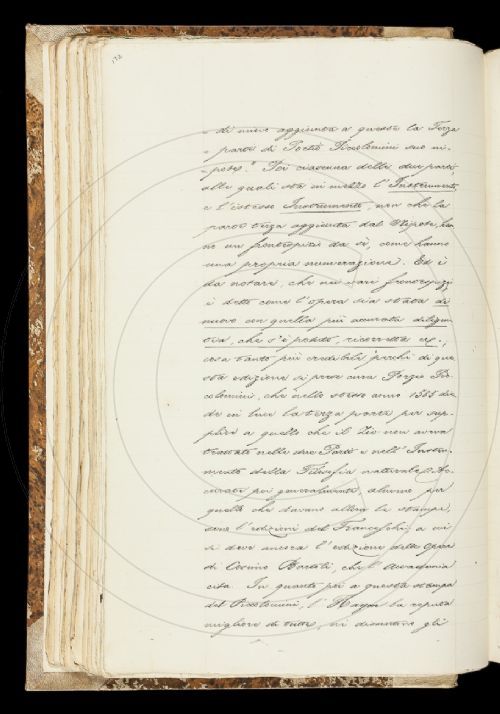 172
„ di nuovo aggiunta a queste la Terza
„ parte di Portio Piccolomini suo ni-
„ pote". Poi ciascuna delle due parti,
alle quali sta in mezzo l'Instrumento
e l'istesso Instrumento, non che la
parte terza aggiunta dal Nipote, han-
no un frontespizio da sè, come hanno
una propria numerazione. Ed è
da notare, che nei vari frontespizj
è detto come l'opera sia stata di
nuovo con quella più accurata diligen-
tia, che s'è potuto, ricorretta ec.,
cosa tanto più credibile perchè di que
sta edizione si prese cura Porzio Pic-
colomini, che nello stesso anno 1585 die-
de in luce la terza parte per sup-
plire a quello che il Zio non aveva
trattato nelle due Parti e nell'Instru-
mento della Filosofia naturale. Ac-
curate poi generalmente, almeno per
quelli che davano allora le stampe,
sono l'edizioni del Franceschi, a cui
si deve ancora l'edizione delle Opere
di Cosimo Bartoli, che l'Accademia
cita. In quanto poi a questa stampa
del Piccolomini, l'Haym la reputa
migliore di tutte, nè dissentono gli